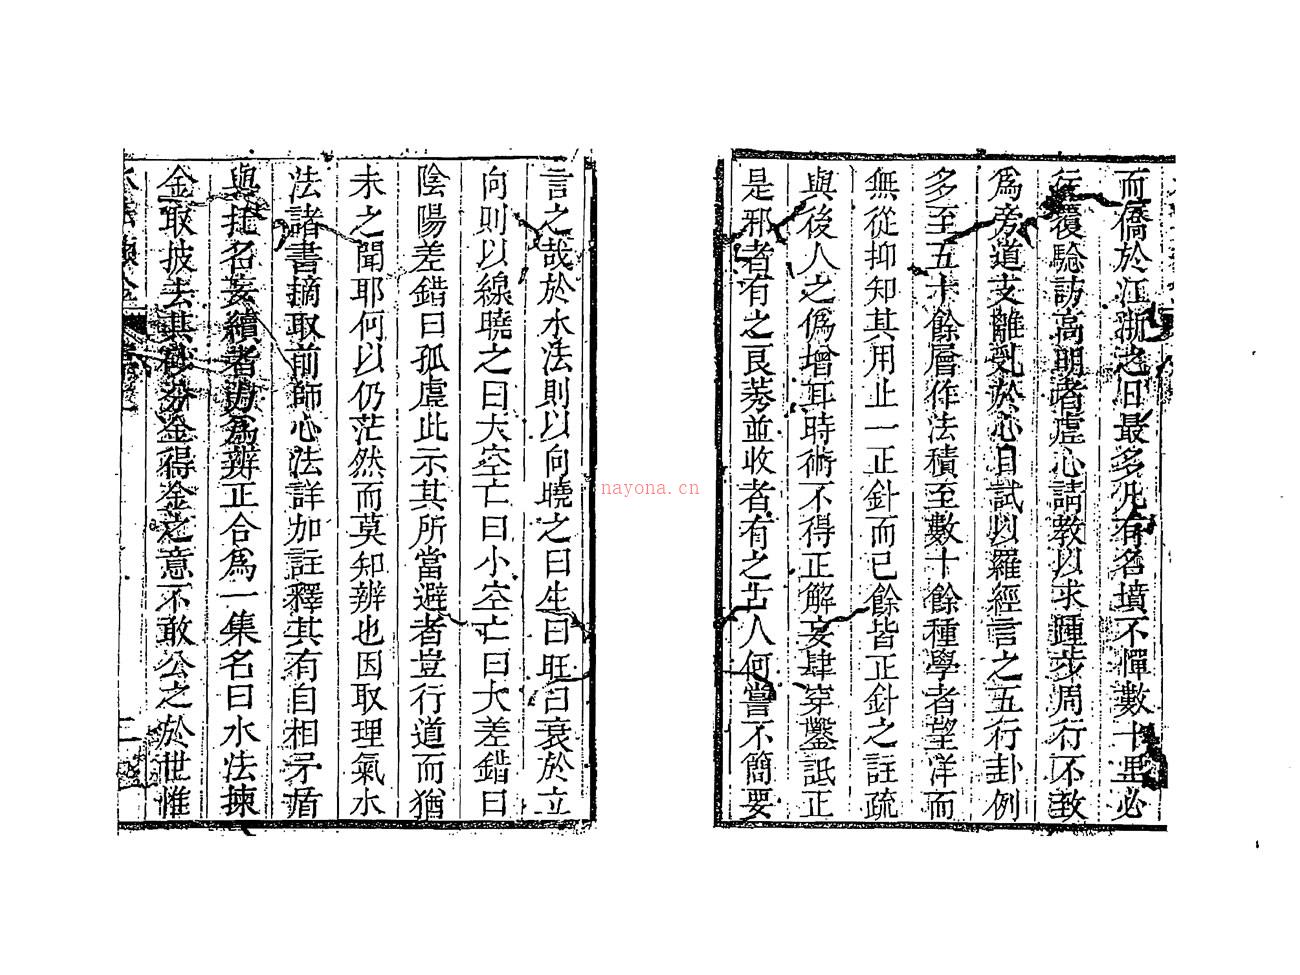 而僑於江浙之日最多凡有名墳不憚數十里必
往覆驗訪高明者虛心請教以求踵步周行不致
為旁道支離乳於心目試以羅經言之五行卦例
多至五十餘層作法積至數十餘種學者望洋而
無從抑知其用止一正針而已餘皆正針之註疏
與後人之偽增耳時術不得正解妄肆穿鑿詆正
是邪者有之良莠並收者有之古人何嘗不簡要
言之哉於水法則以向曉之曰生曰旺曰衰於立
向則以線曉之曰大空亡曰小空亡曰大差錯曰
陰陽差錯曰孤虛此示其所當避者豈行道而猶
未之聞耶何以仍茫然而莫知辨也因取理氣水
法諸書摘取前師心法詳加註釋其有自相矛盾
與托名妄續者為辨正合為一集名曰水法揀
金取披去其砂分金得金之意不敢公之於世惟
水法揀金
二
nayona.cn